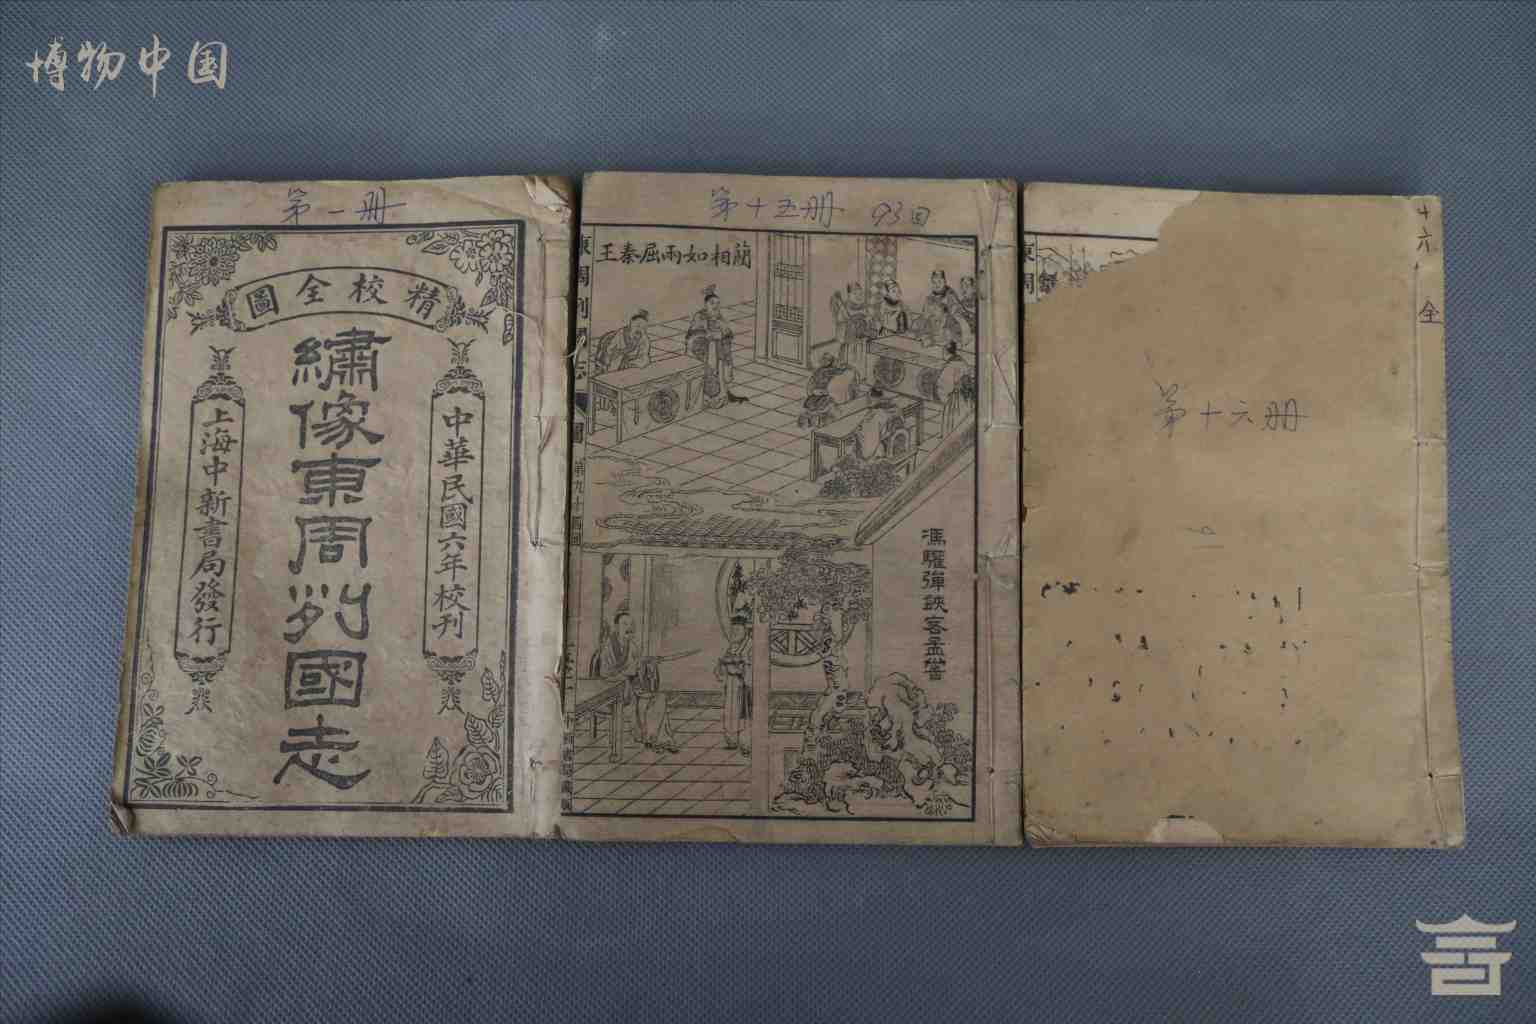 博物中国
第一册
精校全圖
中華民國六年校刊
繡像東周列國志
上海中新書局發行
第十五册 93回
藺相如兩屈秦王
東周列國志
圖
馮驩彈鋏客孟嘗
十六
全
東周
第十六册